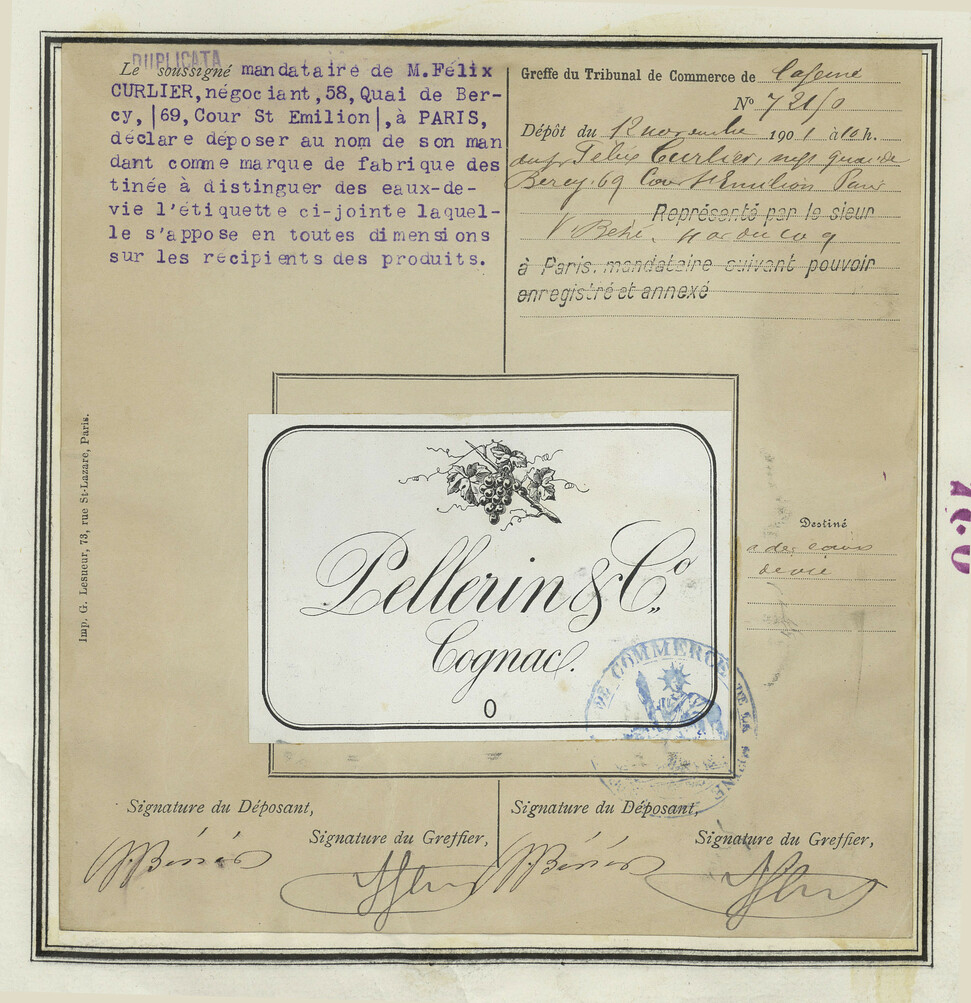 DUPLICATA
Le soussigné mandataire de M.Félix
CURLIER,négociant,58,Quai de Ber-
cy,|69,Cour St Emilion|,à PARIS,
déclare déposer au nom de son man
dant comme marque de fabrique des
tinée à distinguer des eaux-de-
vie l'étiquette ci-jointe laquel-
le s'appose en toutes dimensions
sur les récipients des produits.
Greffe du Tribunal de Commerce de la Seine
N° 721/0
Dépôt du 12 novembre 1901 à 10 h.
Félix Curlier, quai de
Bercy 69 Cour St Emilion Paris
Représenté par le sieur
à Paris, mandataire suivant pouvoir
enregistré et annexé
Imp. G. Lesueur, 73, rue St-Lazare, Paris.
Pellerin & Co
Cognac.
O
Destiné
à des eaux
de vie
DE COMMERCE DE LA SEINE
Signature du Déposant,
Signature du Greffier,
Signature du Déposant,
Signature du Greffier,